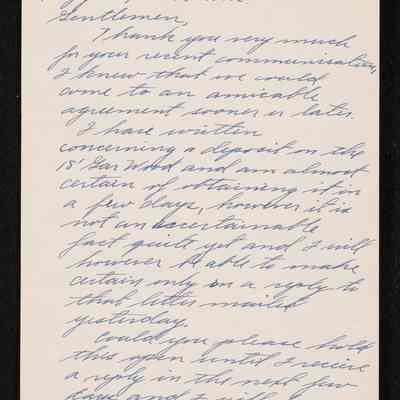 Gentlemen,
I thank you very much
for your recent communication,
I knew that we could
come to an amicable
agreement sooner or later.
I have written
concerning a deposit on the
18' Gar Wood and am almost
certain of obtaining it in
a few days, however it is
not an ascertainable
fact quite yet and I will
however be able to make
certain only on a reply to
that letter mailed
yesterday.
Could you please hold
this open until I receive
a reply in the next few
days and I will